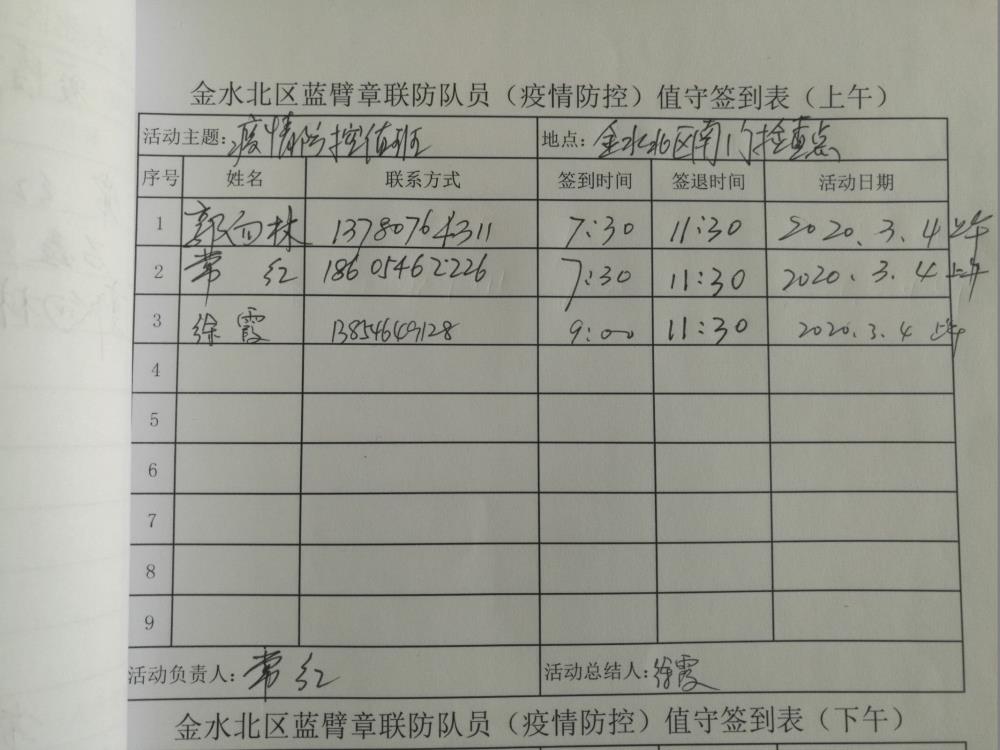 金水北区蓝臂章联防队员（疫情防控）值守签到表（上午）
活动主题：疫情防控值班 地点：金水北区南门检查点
序号 姓名 联系方式 签到时间 签退时间 活动日期
1 郭向林 13780764311 7:30 11:30 2020.3.4 上午
2 常红 18605462226 7:30 11:30 2020.3.4 上午
3 徐霞 13854649128 9:00 11:30 2020.3.4 上午
4
5
6
7
8
9
活动负责人：常红 活动总结人：徐霞
金水北区蓝臂章联防队员（疫情防控）值守签到表（下午）